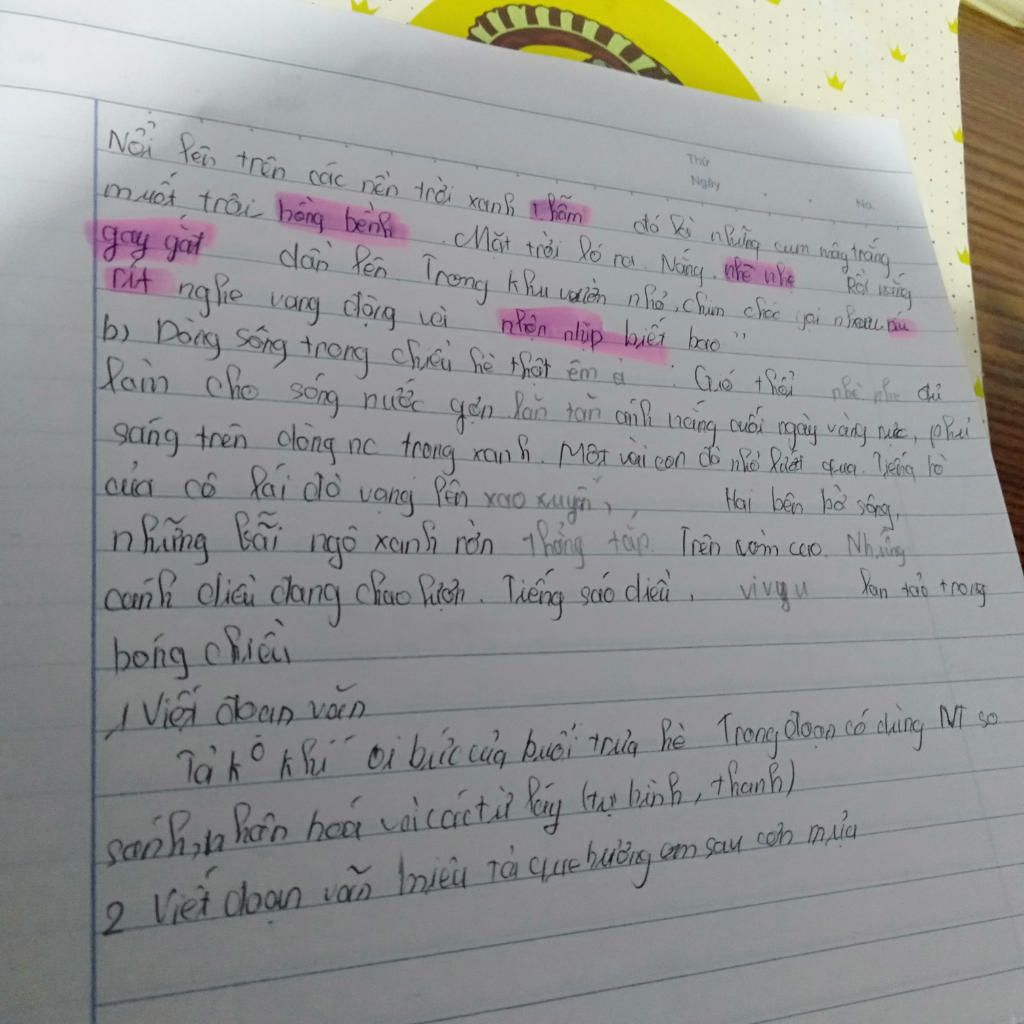 Nổi lên trên các nền trời xanh thẫm đó là những cụm mây trắng
muốt trôi bồng bềnh. Mặt trời ló ra. Nắng nhè nhẹ Rồi nắng
gay gắt dần lên Trong khu vườn nhỏ, chim chóc gọi nhau ríu
rít nghe vang động và nhộn nhịp biết bao"
b) Dòng sông trong chiều hè thật êm ả. Gió thổi nhè nhẹ đủ
làm cho sóng nước gợn lăn tăn ánh nắng cuối ngày vàng rực,
sáng trên dòng nc trong xanh. Một vài con đò nhỏ lướt qua. Tiếng hò
của cô lái đò vang lên xao xuyến, Hai bên bờ sông,
những bãi ngô xanh rờn thẳng tắp. Trên vòm cao. Những
cánh diều đang chao lượn. Tiếng sáo diều, vivgu lan toả trong
bóng chiều
1, Viết đoạn văn
Tả k° khí oi bức của buổi trưa hè Trong đoạn có dùng NT so
sánh, nhân hoá và các từ láy (tự hình, thanh)
2 Viết đoạn văn miêu tả quê hương em sau cơn mưa
Thứ
Ngày
No.